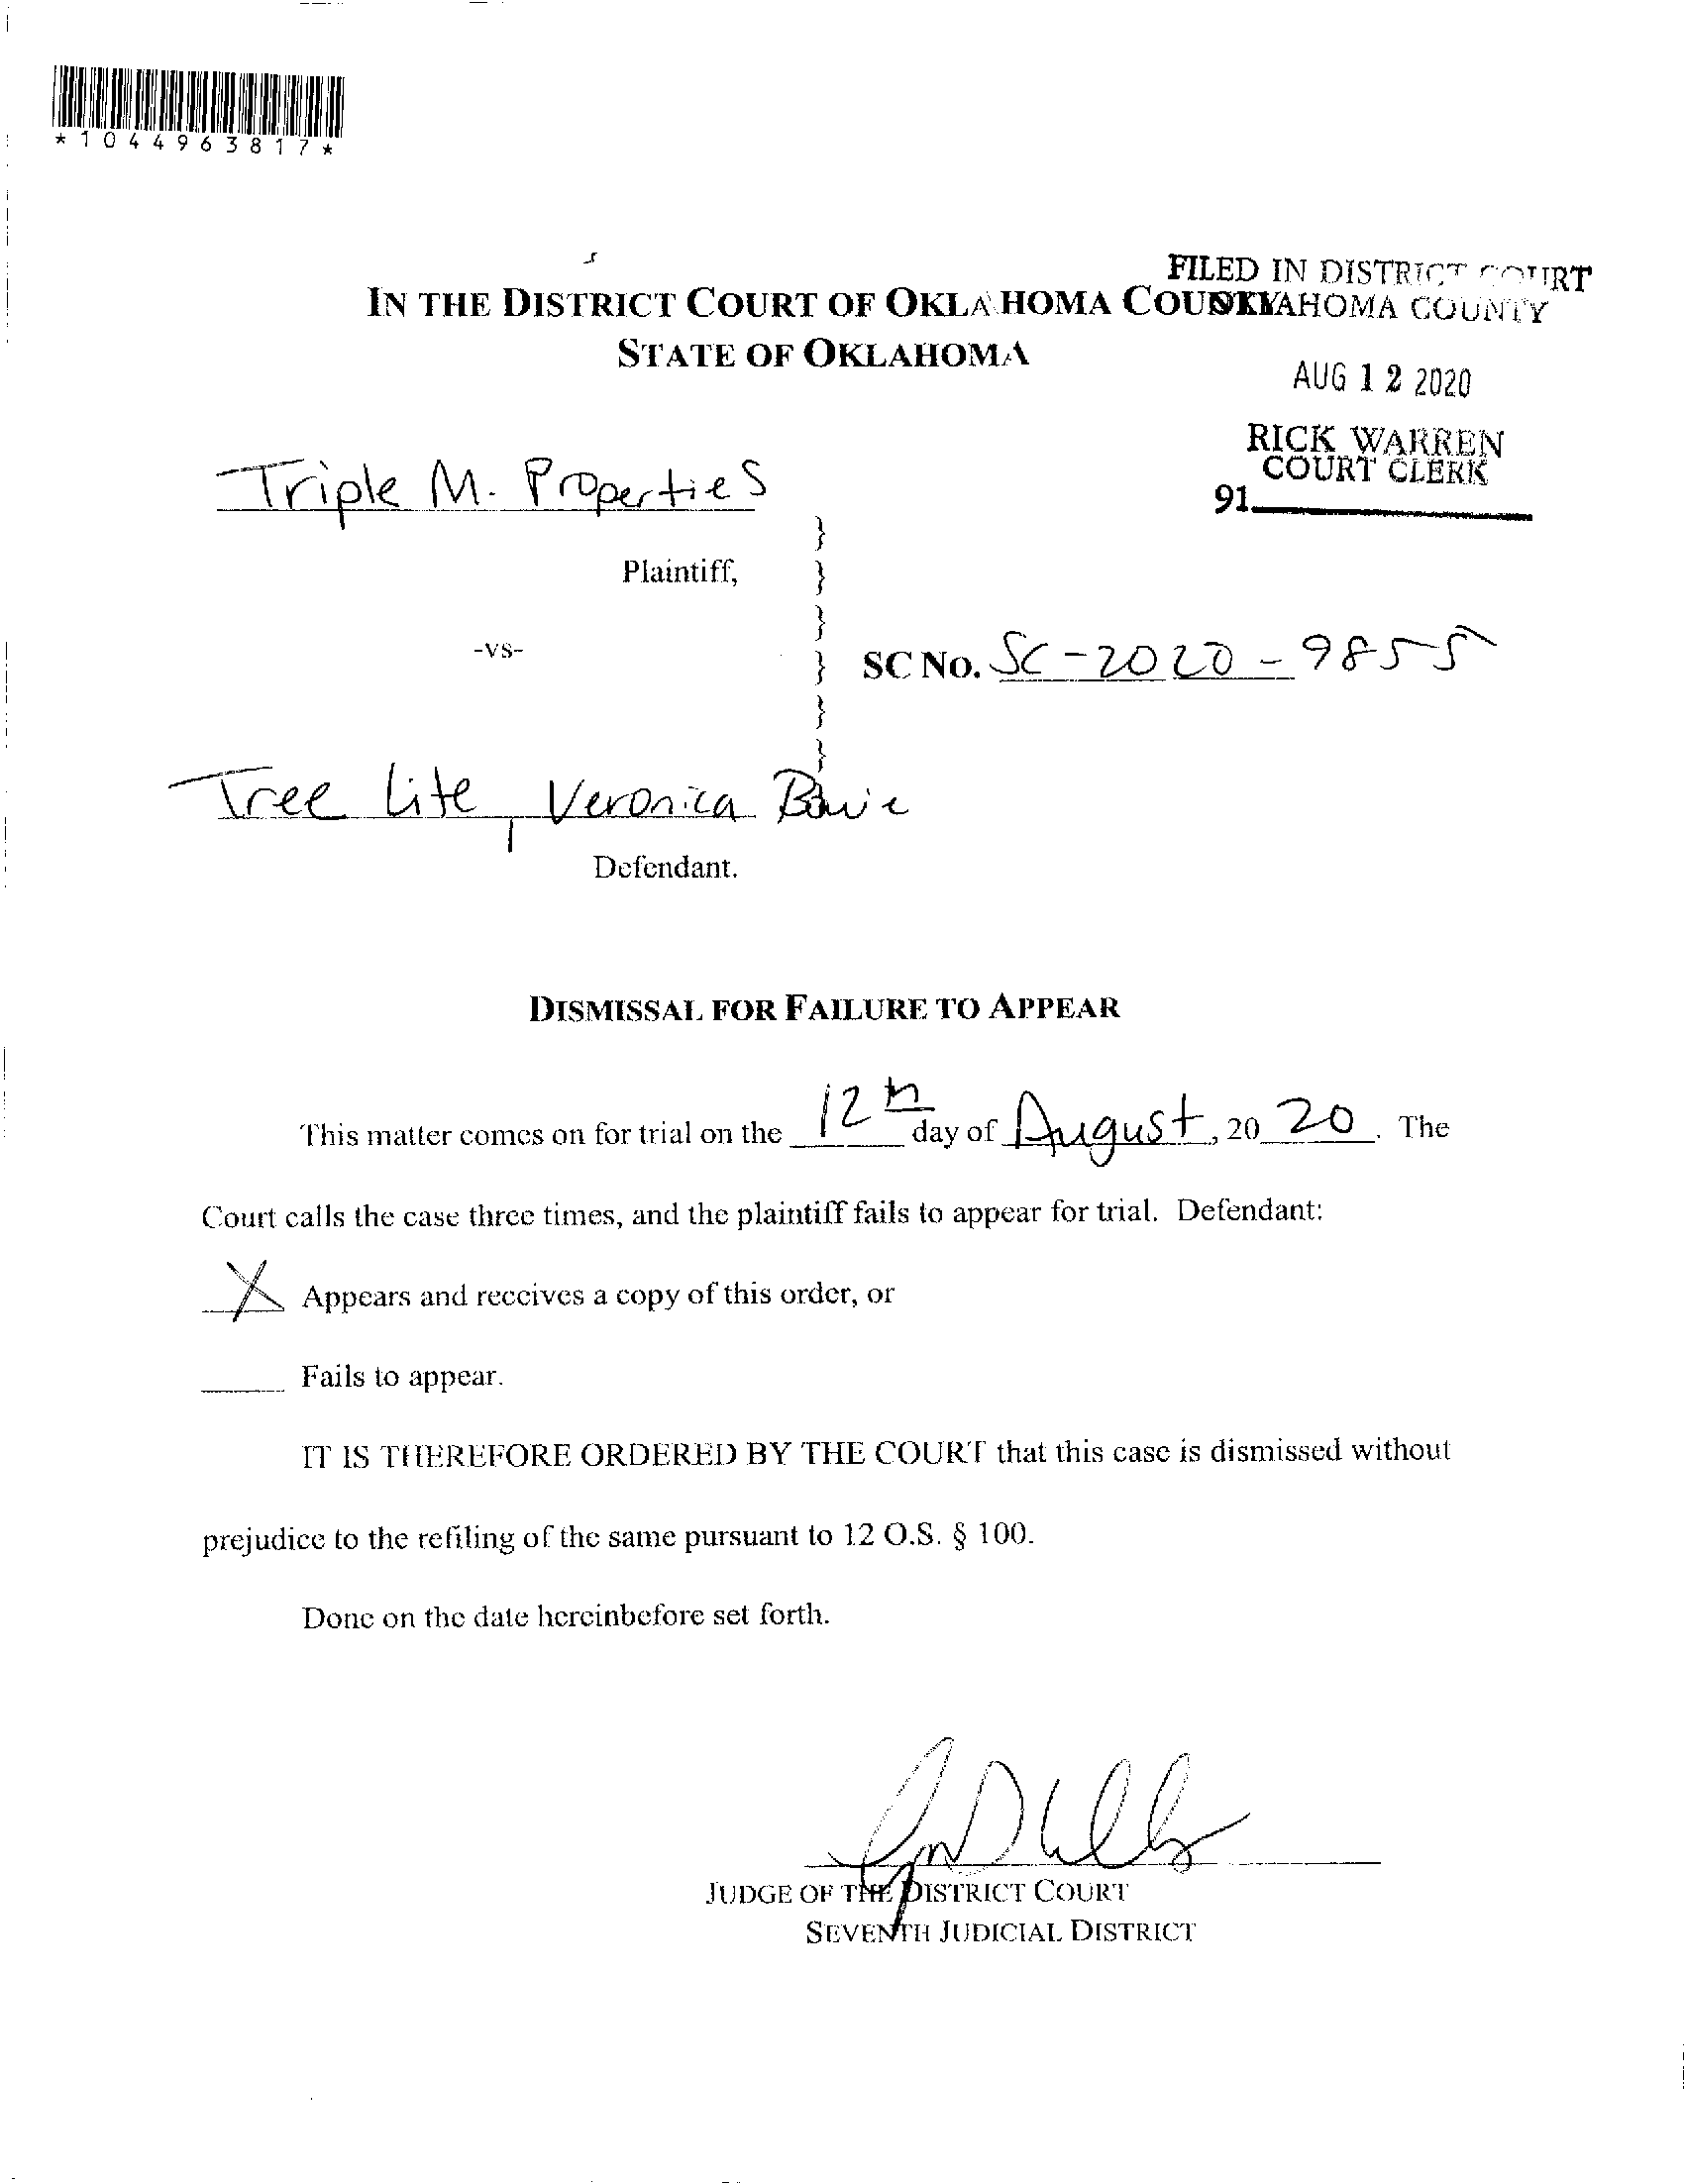 *1044963817*
FILED IN DISTRICT COURT
OKLAHOMA COUNTY
IN THE DISTRICT COURT OF OKLAHOMA COUNTY
STATE OF OKLAHOMA
AUG 12 2020
RICK WARREN
COURT CLERK
91
Triple M. Properties
Plaintiff,
-vs-
SC NO. SC-2020-9855
Tree Lite, Veronica
Defendant.
DISMISSAL FOR FAILURE TO APPEAR
This matter comes on for trial on the 12th day of August, 20 20. The
Court calls the case three times, and the plaintiff fails to appear for trial. Defendant:
X Appears and receives a copy of this order, or
Fails to appear.
IT IS THEREFORE ORDERED BY THE COURT that this case is dismissed without
prejudice to the refiling of the same pursuant to 12 O.S. § 100.
Done on the date hereinbefore set forth.
JUDGE OF THE DISTRICT COURT
SEVENTH JUDICIAL DISTRICT